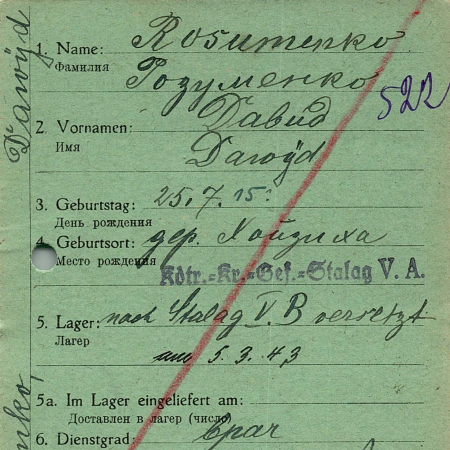 1. Name: Rosumenko
Фамилия Розуменко
522
2. Vornamen: Давид
Имя Dawÿd
3. Geburtstag: 25.7.15.
День рождения
4. Geburtsort: дер.
Место рождения
Kdtr.=Kr.=Gef.=Stalag V. A.
5. Lager: nach Stalag V. B versetzt
Лагерь
am 5.3.43
5a. Im Lager eingeliefert am:
Доставлен в лагерь (число)
6. Dienstgrad: Врач
Dawÿd